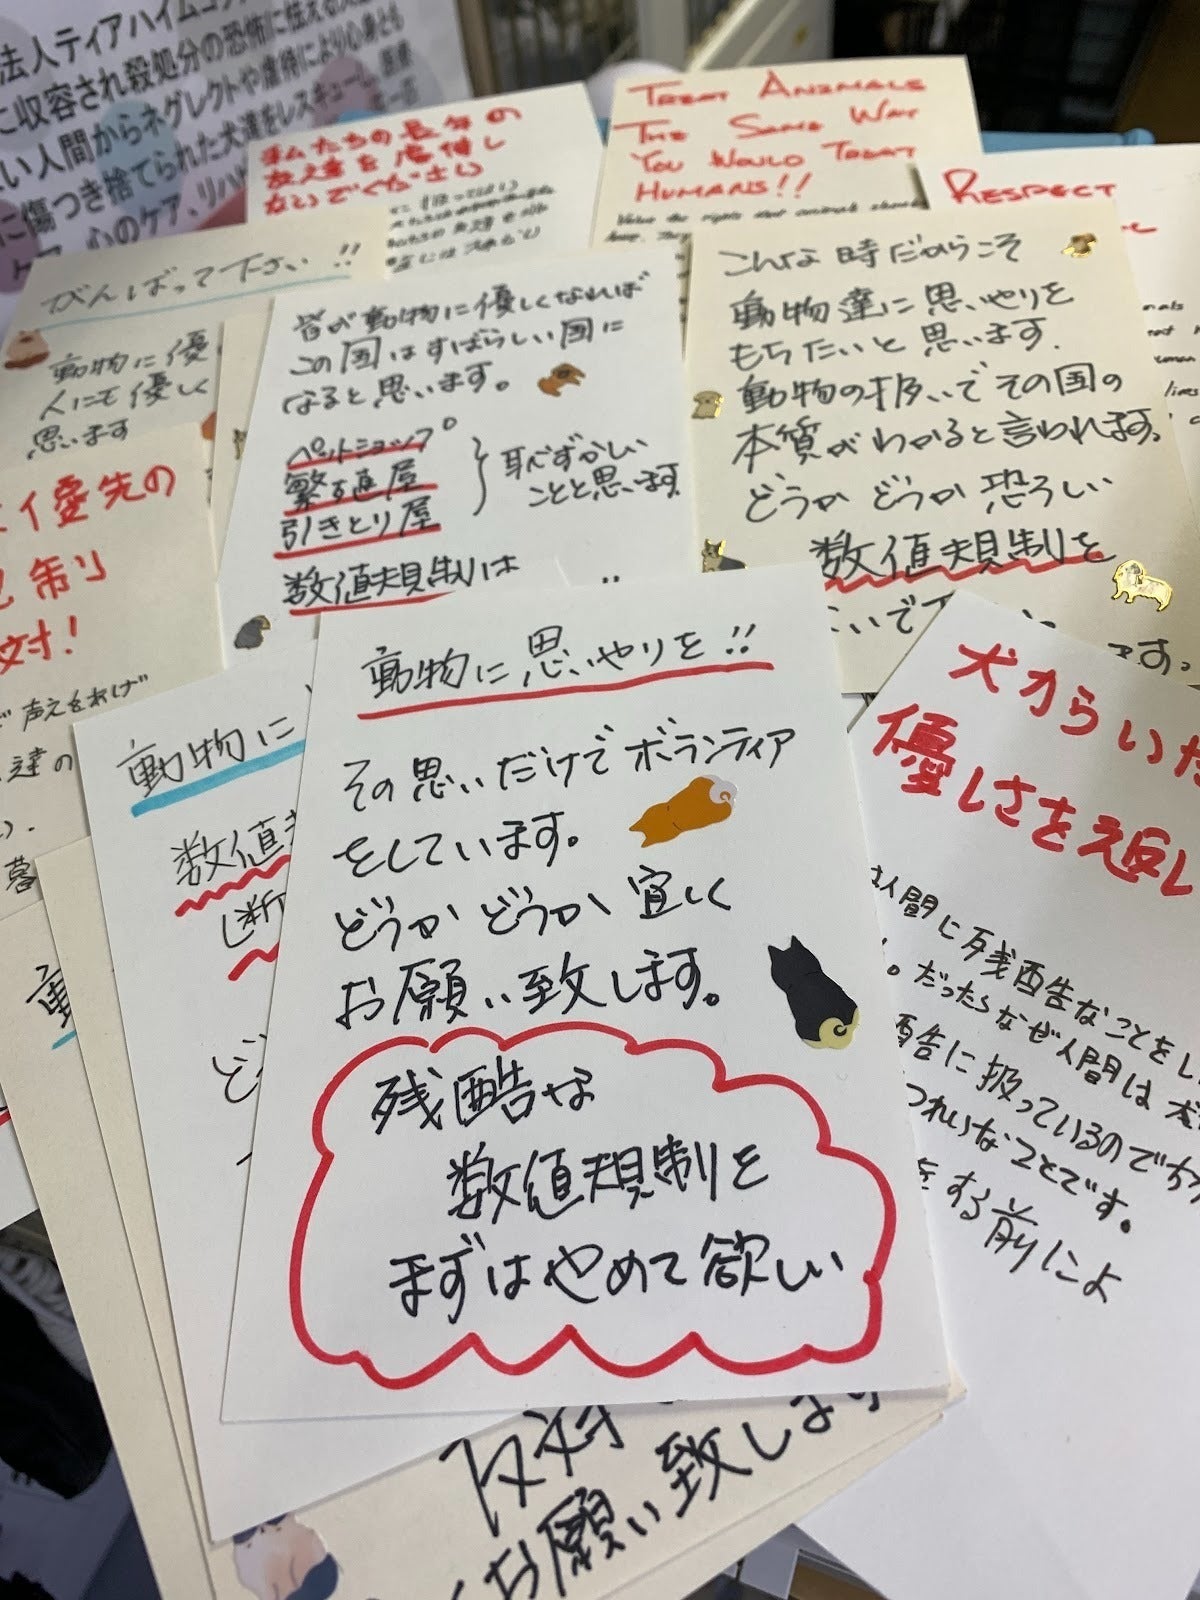 法人ティアハイムコ
に収容され殺処分の恐怖に怯える
い人間からネグレクトや虐待により心身とも
に傷つき捨てられた犬達をレスキューし、医療
心のケア、リハ
私たちの長年の
ないでください
TREAT ANIMALS
THE SAME WAY
YOU WOULD TREAT
HUMANS!!
Value the rights that animals
RESPECT
がんばって下さい!!
動物に優
人にも優しく
思います
皆が動物に優しくなれば
この国はすばらしい国に
なると思います。
ペットショップ
繁殖屋
引きとり屋
恥ずかしい
ことと思います
数値規制は
こんな時だからこそ
動物達に思いやりを
もちたいと思います.
動物の扱いでその国の
本質がわかると言われます.
どうかどうか恐ろしい
数値規制を
優先の
対!
声をあげ
達の
動物に
数値
断
ど
動物に思いやりを!!
その思いだけでボランティア
をしています。
どうかどうか宜しく
お願い致します。
残酷な
数値規制を
まずはやめて欲しい
犬からいた
優しさを返し
人間に残酷なことをし
。だったらなぜ人間は犬
酷に扱っているのです
なことです。
をする前によ
動
反対
お願い致します